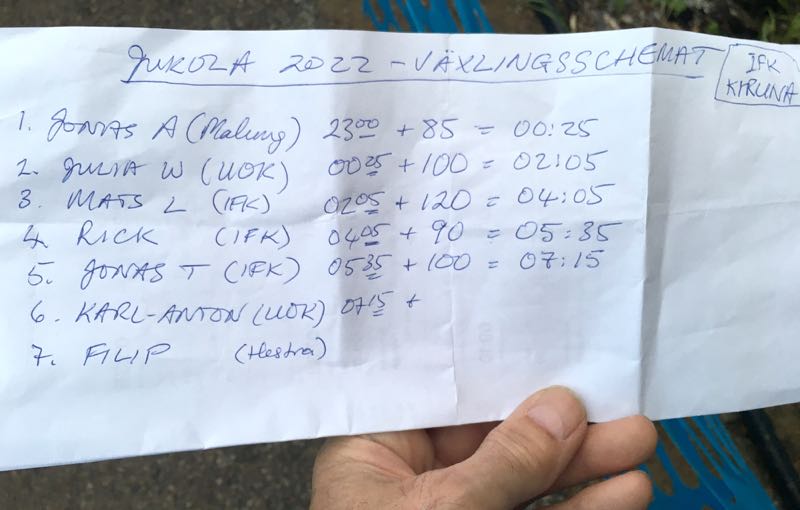 JUKOLA 2022 - VÄXLINGSSCHEMAT
IFK
KIRUNA
1. JONAS A (Malung) 2300 + 85 = 00:25
2. JULIA W (UOK) 0025 + 100 = 02:05
3. MATS L (IFK) 0205 + 120 = 04:05
4. RICK (IFK) 0405 + 90 = 05:35
5. JONAS T (IFK) 0535 + 100 = 07:15
6. KARL-ANTON (UOK) 0715 +
7. FILIP (Hestra)